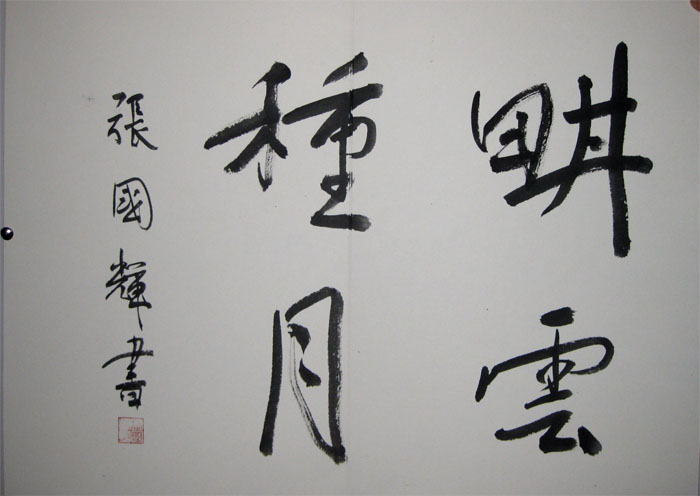 畊雲
種月
張國輝書